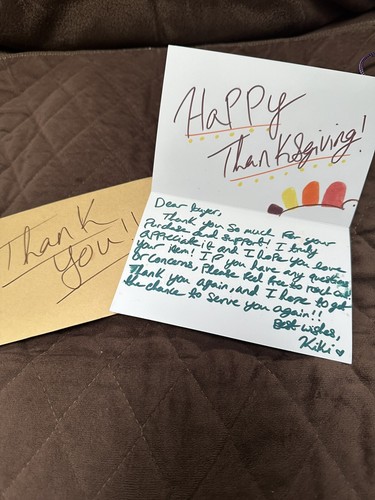 Happy
Thanksgiving!
Dear buyer,
Thank you so much for your
purchase and support! I truly
appreciate it and I hope you love
your item! If you have any questions
or concerns, please feel free to reach out!
Thank you again, and I hope to get
the chance to serve you again!!
Best wishes,
Kiki
Thank
you!!